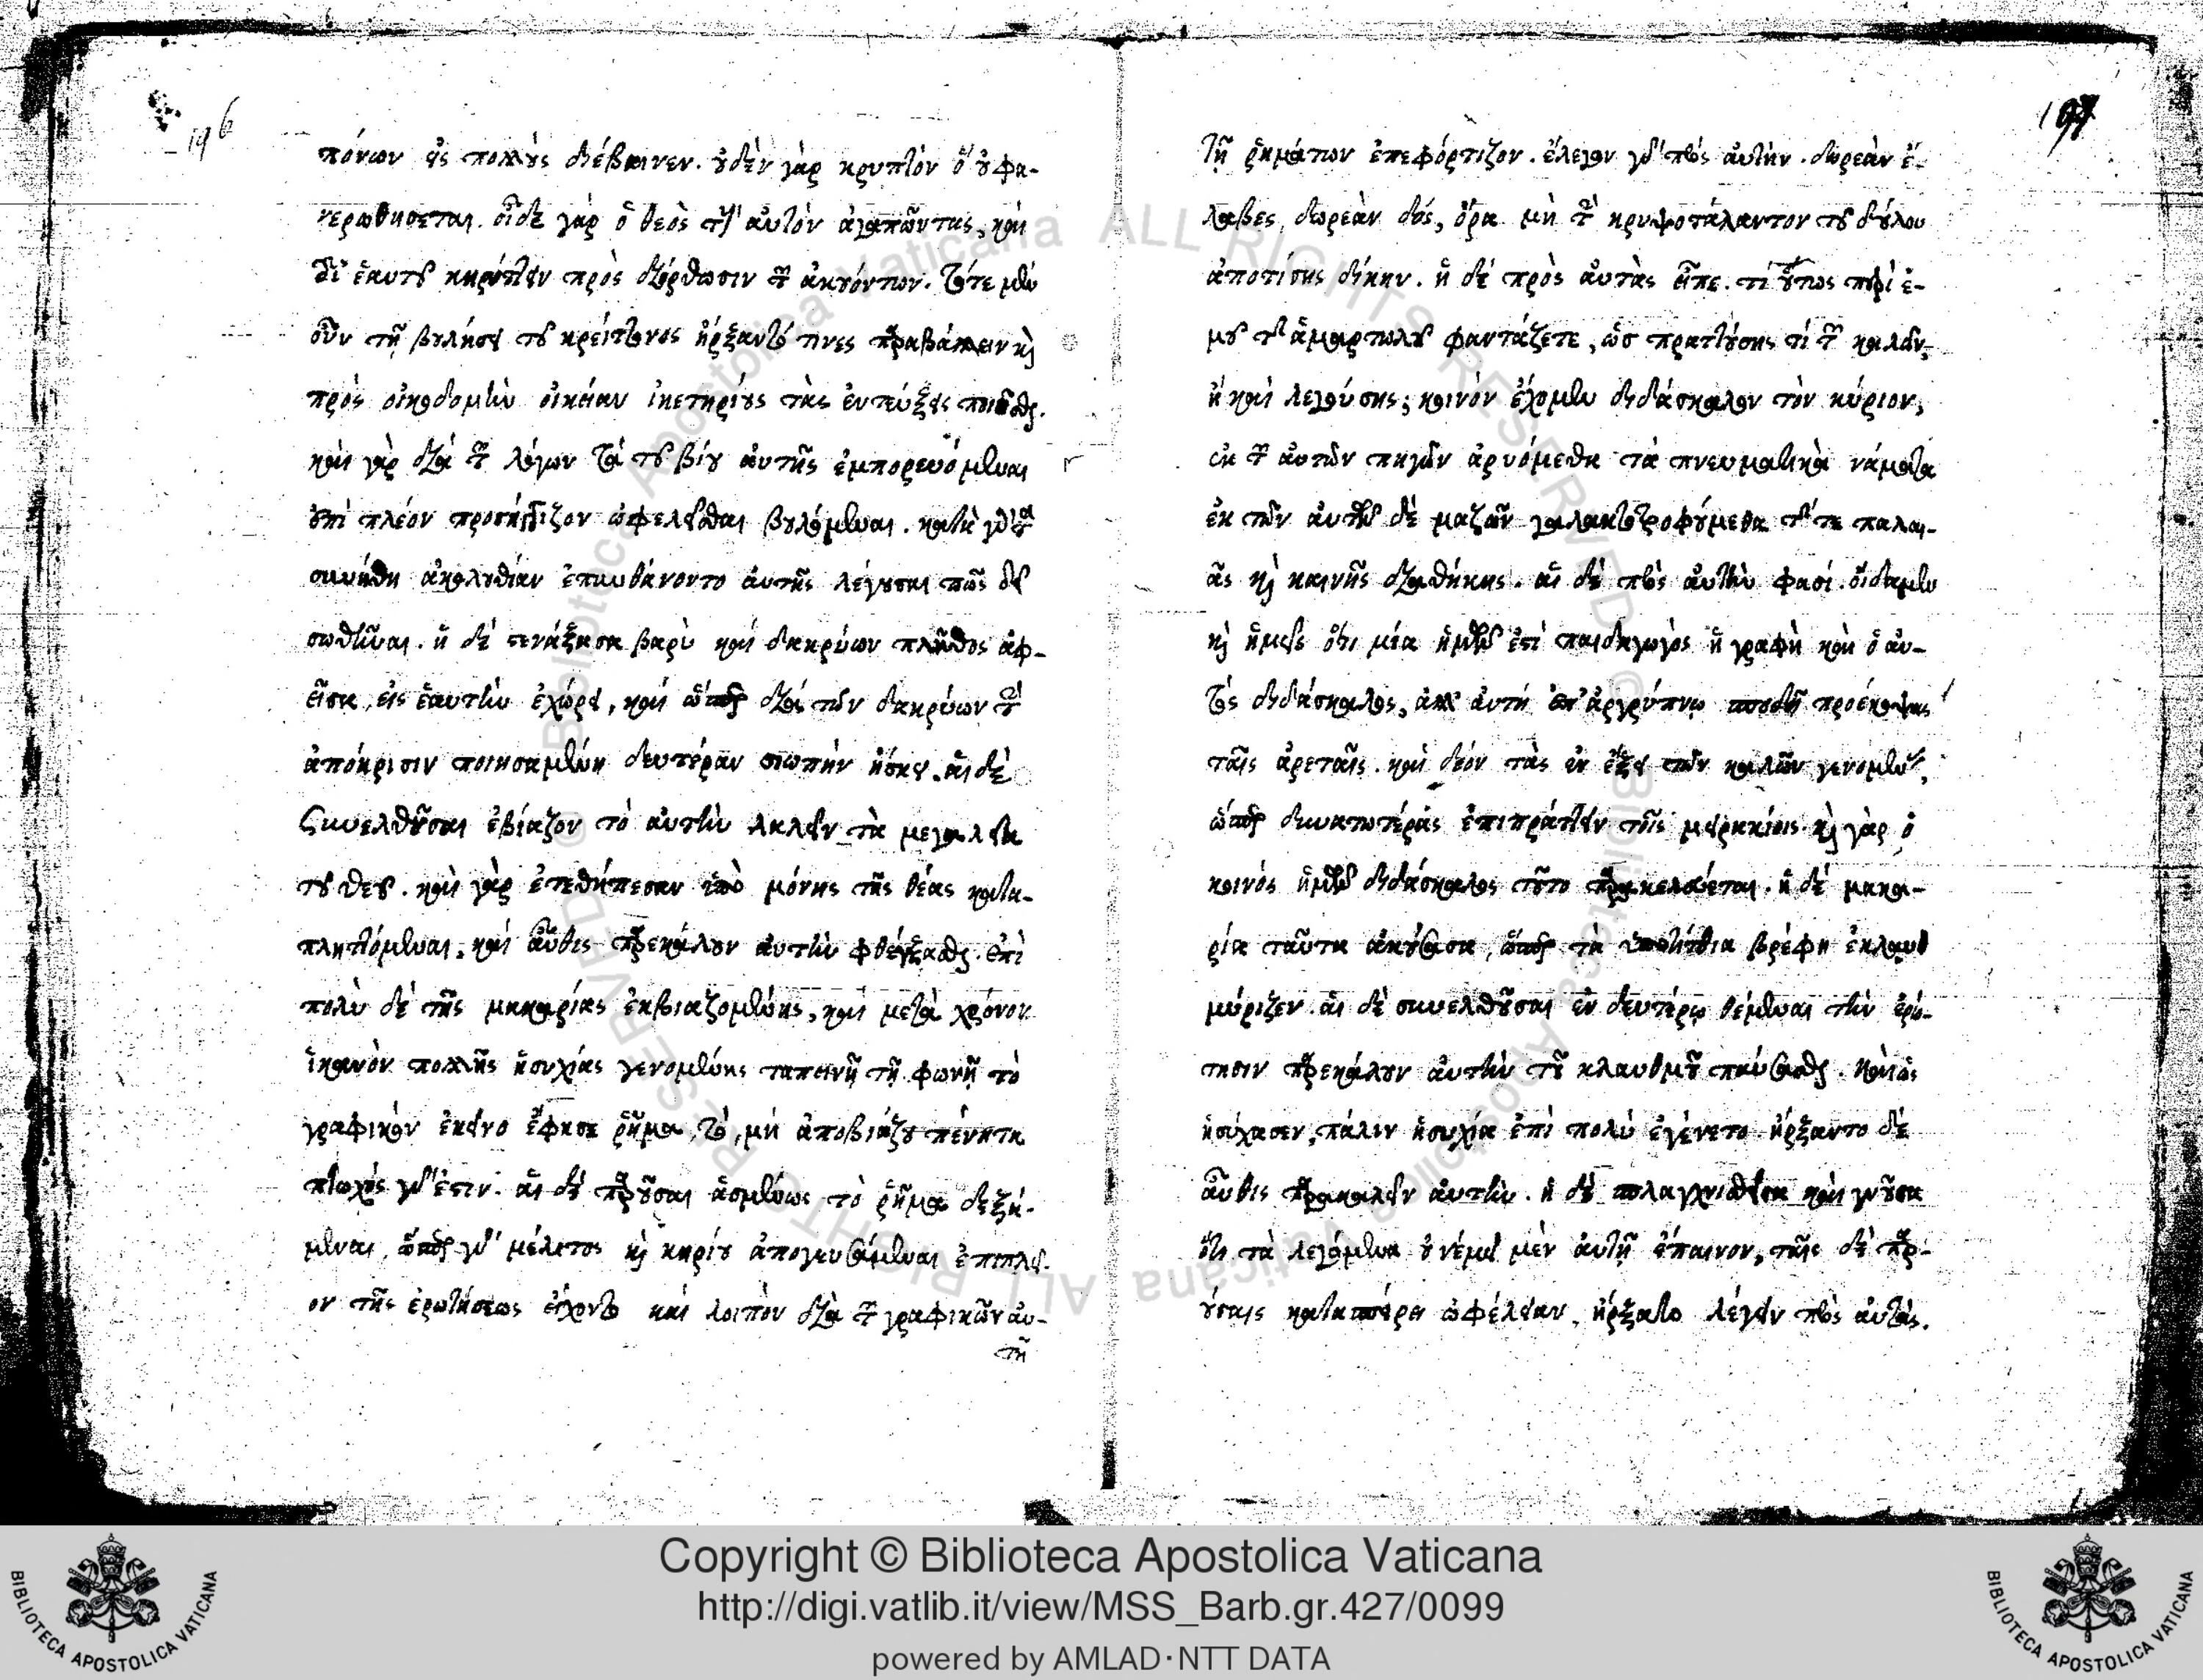 196
πόνων εἰς πολλοὺς διέβαινεν. οὐδὲν γὰρ κρυπτὸν ὃ οὐ φα-
νερωθήσεται. οἶδε γὰρ ὁ θεὸς τοὺς αὐτὸν ἀγαπῶντας, καὶ
δι' ἑαυτοῦ κηρύττειν πρὸς διόρθωσιν τῶν ἀκουόντων. τότε μὲν
οὖν τῇ βουλήσει τοῦ κρείττονος ἤρξαντό τινες παραβάλλειν καὶ
πρὸς οἰκοδομὴν οἰκείαν ἱκετηρίους τὰς ἐντεύξεις ποιεῖσθαι.
καὶ γὰρ διὰ τῶν λόγων τὰ τοῦ βίου αὐτῆς ἐμπορευόμεναι
ἐπὶ πλέον ὠφελεῖσθαι βουλόμεναι. κατὰ γοῦν τὴν
συνήθη ἀκολουθίαν ἐπυνθάνοντο αὐτῆς λέγουσαι πῶς δεῖ
σωθῆναι. ἡ δὲ στενάξασα βαρὺ καὶ δακρύων πλῆθος ἀφ-
εῖσα, εἰς ἑαυτὴν ἐχώρει, καὶ ὥσπερ διὰ τῶν δακρύων τὴν
ἀπόκρισιν ποιησαμένη δευτέραν σιωπὴν ἤσκει. αἱ δὲ
συνελθοῦσαι ἐβίαζον τὸ αὐτὴν λαλεῖν τὰ μεγαλεῖα
τοῦ θεοῦ. καὶ γὰρ ἐτεθήπεσαν ἀπὸ μόνης τῆς θέας κατα-
πληττόμεναι. καὶ αὖθις παρεκάλουν αὐτὴν φθέγξασθαι. ἐπὶ
πολὺ δὲ τῆς μακαρίας ἐκβιαζομένης, καὶ μετὰ χρόνον
ἱκανὸν πολλῆς ἡσυχίας γενομένης ταπεινῇ τῇ φωνῇ τὸ
γραφικὸν ἐκεῖνο ἔφησε ῥῆμα, τὸ, μὴ ἀποβιάζου πένητα
πτωχὸς γάρ ἐστιν. αἱ δὲ παροῦσαι ἀσμένως τὸ ῥῆμα δεξά-
μεναι, ὥσπερ γοῦν μέλιτος καὶ κηρίου ἀπογευσάμεναι ἐπιπλεῖ-
ον τῆς ἐρωτήσεως εἴχοντο καὶ λοιπὸν διὰ τῶν γραφικῶν αὐ-
τῇ
197
τῇ ῥημάτων ἐπεφόρτιζον. ἔλεγον γοῦν πρὸς αὐτήν. δωρεὰν ἔ-
λαβες, δωρεὰν δός, ὅρα μὴ τὴν κρυψοτάλαντον τοῦ δούλου
ἀποτίσῃς δίκην. ἡ δὲ πρὸς αὐτὰς εἶπε. τί οὕτως περὶ ἐ-
μοῦ τῆς ἁμαρτωλοῦ φαντάζετε, ὡς πραττούσης τί τῶν καλῶν,
ἢ καὶ λεγούσης; κοινὸν ἔχομεν διδάσκαλον τὸν κύριον,
ἐκ τῶν αὐτῶν πηγῶν ἀρυόμεθα τὰ πνευματικὰ νάματα
ἐκ τῶν αὐτῶν δὲ μαζῶν γαλακτοτροφούμεθα τῆς τε παλαι-
ᾶς καὶ καινῆς διαθήκης. αἱ δὲ πρὸς αὐτὴν φασί. οἴδαμεν
καὶ ἡμεῖς ὅτι μία ἡμῶν ἐστὶ παιδαγωγὸς ἡ γραφὴ καὶ ὁ αὐ-
τὸς διδάσκαλος, ἀλλ' αὐτὴ ἐν ἀγρύπνῳ σπουδῇ προέκοψας
ταῖς ἀρεταῖς. καὶ δέον τὰς ἐν ἕξει τῶν καλῶν γενομένας,
ὥσπερ δυνατωτέρας ἐπιπράττειν τοῖς μειρακίοις. καὶ γὰρ ὁ
κοινὸς ἡμῶν διδάσκαλος τοῦτο παρακελεύεται. ἡ δὲ μακα-
ρία ταῦτα ἀκούσασα, ὥσπερ τὰ ὑποτίτθια βρέφη ἐκλαυθ
μύριζεν. αἱ δὲ συνελθοῦσαι ἐν δευτέρῳ θέμεναι τὴν ἐρώ-
τησιν παρεκάλουν αὐτὴν τοῦ κλαυθμοῦ παύσασθαι. καὶ ὡς
ἡσύχασεν, πάλιν ἡσυχία ἐπὶ πολὺ ἐγένετο. ἤρξαντο δὲ
αὖθις παρακαλεῖν αὐτήν. ἡ δὲ σπλαγχνισθεῖσα καὶ γνοῦσα
ὅτι τὰ λεγόμενα οὐ νέμει μὲν αὐτῇ ἔπαινον, ταῖς δὲ παρ-
ούσαις κατασπείρει ὠφέλειαν, ἤρξατο λέγειν πρὸς αὐτάς.
Copyright © Biblioteca Apostolica Vaticana
http://digi.vatlib.it/view/MSS_Barb.gr.427/0099
powered by AMLAD·NTT DATA
BIBLIOTECA APOSTOLICA VATICANA
BIBLIOTECA APOSTOLICA VATICANA